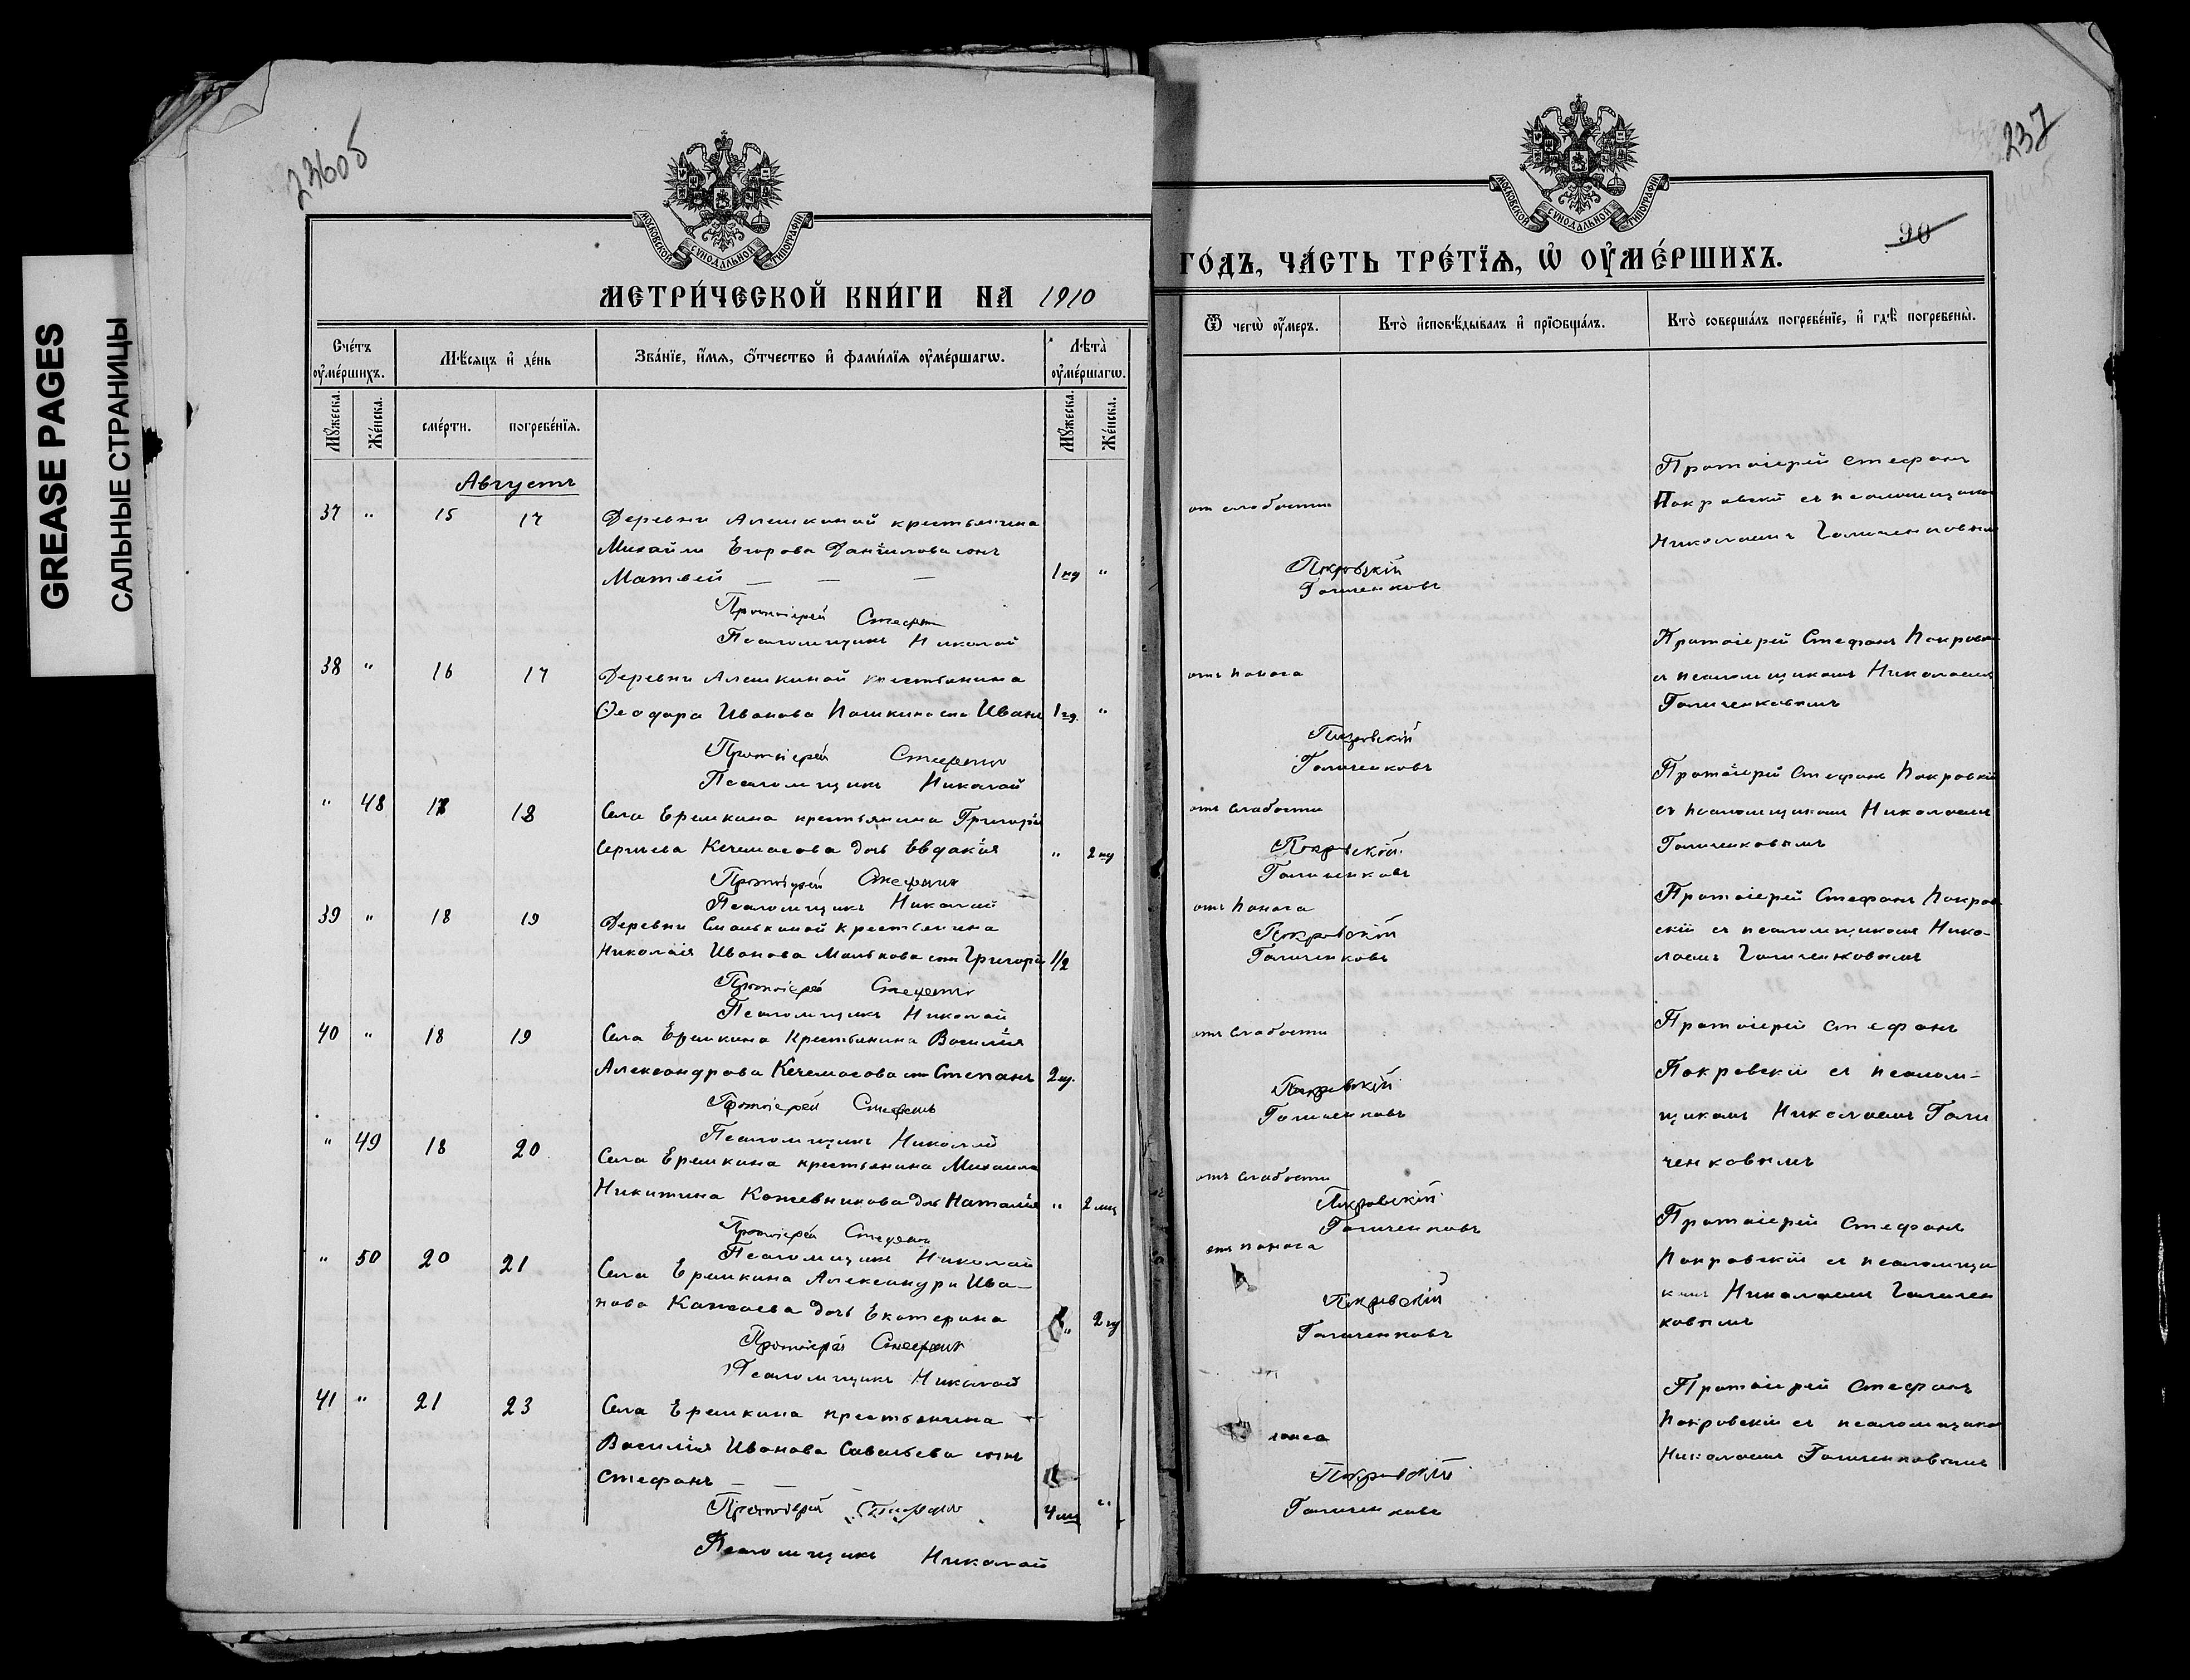 GREASE PAGES
САЛЬНЫЕ СТРАНИЦЫ
236об
МОСКОВСКОЙ СѴНОДАЛЬНОЙ ТИПОГРАФІИ
МЕТРИ́ЧЕСКОЙ КНИ́ГИ НА 1910
Счéтъ оу҆мéршихъ.
Мѣ́сяцъ и҆ дéнь
Звáнїе, и҆́мя, ѻ҆́тчество и҆ фами́лїя оу҆мéршагѡ.
Лѣтà оу҆мéршагѡ.
Мꙋ́жеска.
Жéнска.
смéрти.
погребéнїя.
Мꙋ́жеска.
Жéнска.
Августъ
37 " 15 17 Деревни Алешкиной крестьянина
Михаила Егорова Данилова сынъ
Матвей — — — 1 нд "
Протоіерей Стефанъ
Псаломщикъ Николай
38 " 16 17 Деревни Алешкиной крестьянина
Ѳеодора Иванова Пашкина сынъ Иванъ 1 гд. "
Протоіерей Стефанъ
Псаломщикъ Николай
" 48 18 Села Еремкина крестьянина Григорія
Сергѣева Кечемасова дочь Евдокія " 2 нд
Протоіерей Стефанъ
Псаломщикъ Николай
39 " 18 19 Деревни Смолькиной крестьянина
Николаія Иванова Малькова сынъ Григорій 1/2
Протоіерей Стефанъ
Псаломщикъ Николай
40 " 18 19 Села Еремкина крестьянина Василія
Александрова Кечемасова сынъ Степанъ 2 нд.
Протоіерей Стефанъ
Псаломщикъ Николай
" 49 18 20 Села Еремкина крестьянина Михаила
Никитина Кожевникова дочь Наталія " 2 мц
Протоіерей Стефанъ
Псаломщикъ Николай
" 50 20 21 Села Еремкина Александра Ива-
нова дочь Екатерина " 2
Протоіерей Стефанъ
Псаломщикъ Николай
41 " 21 23 Села Еремкина крестьянина
Василія Иванова Савельева сынъ
Стефанъ — — —
Протоіерей Стефанъ 4 "
Псаломщикъ Николай
237
90
МОСКОВСКОЙ СѴНОДАЛЬНОЙ ТИПОГРАФІИ
ГÓДЪ, ЧÁСТЬ ТРÉТЇѦ, Ѡ҆ ОУ҆МÉРШИХЪ.
Ѿ чегѡ̀ оу҆́меръ.
Ктò и҆сповѣ́дывалъ и҆ прїѡбщáлъ.
Ктò совершáлъ погребéнїе, и҆ гдѣ̀ погребены̀.
Протоіерей Стефанъ
от слабости Покровскій съ псаломщикомъ
Николаемъ Галиченковымъ
Покровскій
Галиченковъ
Протоіерей Стефанъ Покровскі
отъ поноса съ псаломщикомъ Николаемъ
Галиченковымъ
Покровскій
Галиченковъ
Протоіерей Стефанъ Покровскій
отъ слабости съ псаломщикомъ Николаемъ
Галиченковымъ
Покровскій
Галиченковъ
Протоіерей Стефанъ Покров
отъ поноса скій съ псаломщикомъ Нико-
лаемъ Галиченковымъ
Покровскій
Галиченковъ
отъ слабости Протоіерей Стефанъ
Покровскій съ псалом-
щикомъ Николаемъ Гали
ченковымъ
Покровскій
Галиченковъ
отъ слабости
Покровскій
Галиченковъ
Протоіерей Стефанъ
отъ поноса Покровскій съ псаломщи
комъ Николаемъ Галичен
ковымъ
Покровскій
Галиченковъ
Протоіерей Стефанъ
Покровскій съ псаломщикомъ
Николаемъ Галиченковымъ
Покровскій
Галиченковъ